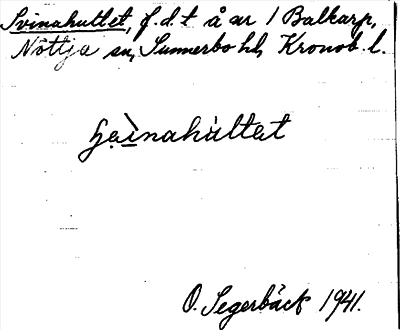 Svinahultet, f.d.t å ar 1 Balkarp,
Nöttja sn, Sunnerbo hd, Kronob. l.
O. Segerbäck 1941.